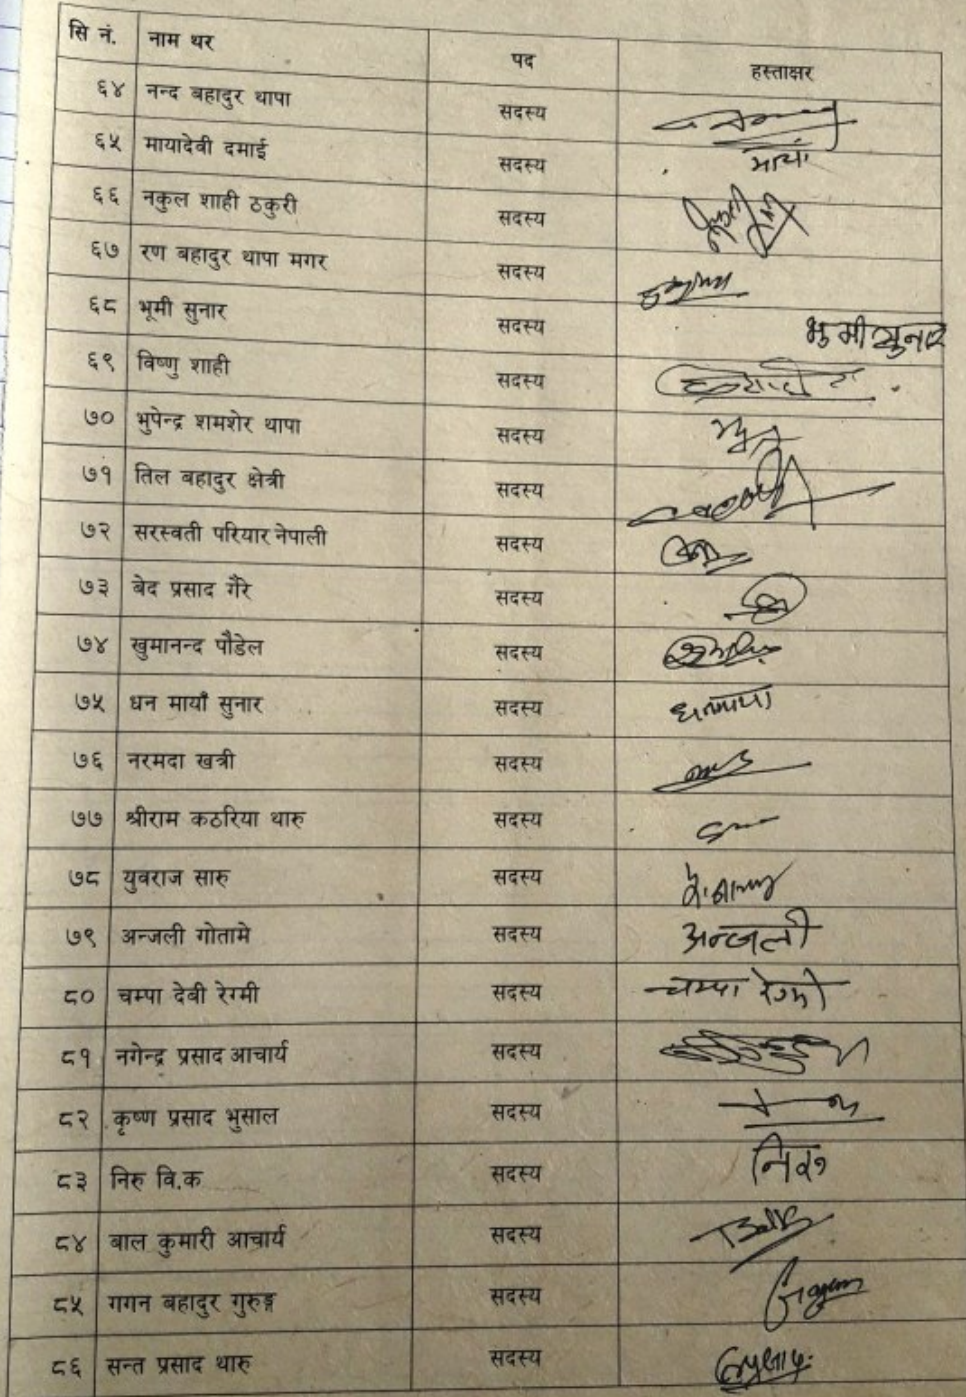 सि नं. नाम थर पद हस्ताक्षर
६४ नन्द बहादुर थापा सदस्य
६५ मायादेवी दमाई सदस्य माया
६६ नकुल शाही ठकुरी सदस्य
६७ रण बहादुर थापा मगर सदस्य
६८ भूमी सुनार सदस्य भुमी सुनार
६९ विष्णु शाही सदस्य
७० भुपेन्द्र शमशेर थापा सदस्य
७१ तिल बहादुर क्षेत्री सदस्य
७२ सरस्वती परियार नेपाली सदस्य
७३ बेद प्रसाद गैरे सदस्य
७४ खुमानन्द पौडेल सदस्य
७५ धन मायाँ सुनार सदस्य धनमाया
७६ नरमदा खत्री सदस्य
७७ श्रीराम कठरिया थारु सदस्य
७८ युवराज सारु सदस्य
७९ अन्जली गोतामे सदस्य अन्जली
८० चम्पा देबी रेग्मी सदस्य चम्पा रेग्मी
८१ नगेन्द्र प्रसाद आचार्य सदस्य
८२ कृष्ण प्रसाद भुसाल सदस्य
८३ निरु वि.क सदस्य निरु
८४ बाल कुमारी आचार्य सदस्य
८५ गगन बहादुर गुरुङ्ग सदस्य
८६ सन्त प्रसाद थारु सदस्य